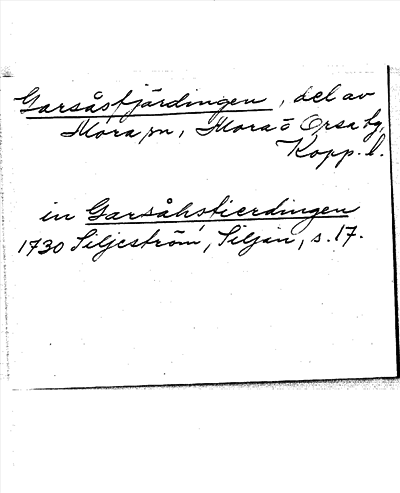 Garsåsfjärdingen, del av
Mora sn, Mora o Orsa tg,
Kopp. l.
in Garsåhsfierdingen
1730 Siljeström, Siljan, s. 17.